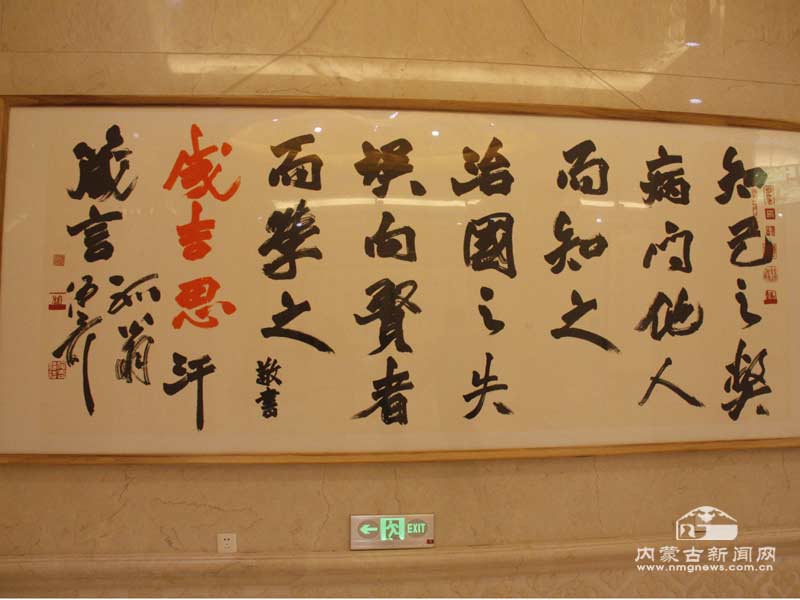 知己之弊
病问他人
而知之
治國之失
误向賢者
而學之
敬書
成吉思汗
箴言
孤翁
EXIT
内蒙古新闻网
www.nmgnews.com.cn